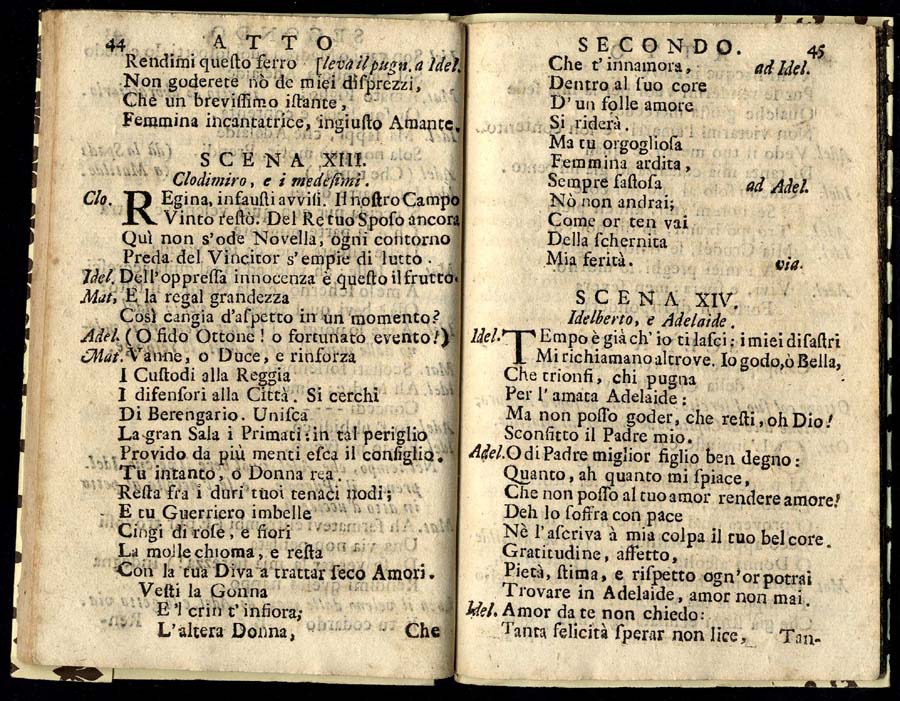 44 ATTO
Rendimi queſto ferro [leva il pugn. a Idel.
Non goderete nò de miei diſprezzi,
Che un breviſſimo iſtante,
Femmina incantatrice, ingiuſto Amante.
SCENA XIII.
Clodimiro, e i medeſimi.
Clo. REgina, infauſti avviſi. Il noſtro Campo
Vinto reſtò. Del Re tuo Spoſo ancora
Quì non s'ode Novella, ogni contorno
Preda del Vincitor s'empie di lutto.
Idel. Dell'oppreſſa innocenza è queſto il frutto.
Mat. E la regal grandezza
Così cangia d'aſpetto in un momento?
Adel. (O fido Ottone! o fortunato evento!)
Mat. Vanne, o Duce, e rinforza
I Cuſtodi alla Reggia
I difenſori alla Città. Si cerchi
Di Berengario. Uniſca
La gran Sala i Primati: in tal periglio
Provido da più menti eſca il conſiglio.
Tu intanto, o Donna rea.
Reſta fra i duri tuoi tenaci nodi;
E tu Guerriero imbelle
Cingi di roſe, e fiori
La molle chioma, e reſta
Con la tua Diva a trattar ſeco Amori.
Veſti la Gonna
E'l crin t'infiora;
L'altera Donna,
Che
SECONDO. 45
Che t'innamora, ad Idel.
Dentro al ſuo core
D'un folle amore
Si riderà.
Ma tu orgoglioſa
Femmina ardita,
Sempre faſtoſa ad Adel.
Nò non andrai;
Come or ten vai
Della ſchernita
Mia ferità. via.
SCENA XIV.
Idelberto, e Adelaide.
Idel. TEmpo è già ch'io ti laſci: i miei diſaſtri
Mi richiamano altrove. Io godo, ò Bella,
Che trionfi, chi pugna
Per l'amata Adelaide:
Ma non poſſo goder, che reſti, oh Dio!
Sconfitto il Padre mio.
Adel. O di Padre miglior figlio ben degno:
Quanto, ah quanto mi ſpiace,
Che non poſſo al tuo amor rendere amore!
Deh lo ſoffra con pace
Nè l'aſcriva à mia colpa il tuo bel core.
Gratitudine, affetto,
Pietà, ſtima, e riſpetto ogn'or potrai
Trovare in Adelaide, amor non mai.
Idel. Amor da te non chiedo:
Tanta felicità ſperar non lice,
Tan-